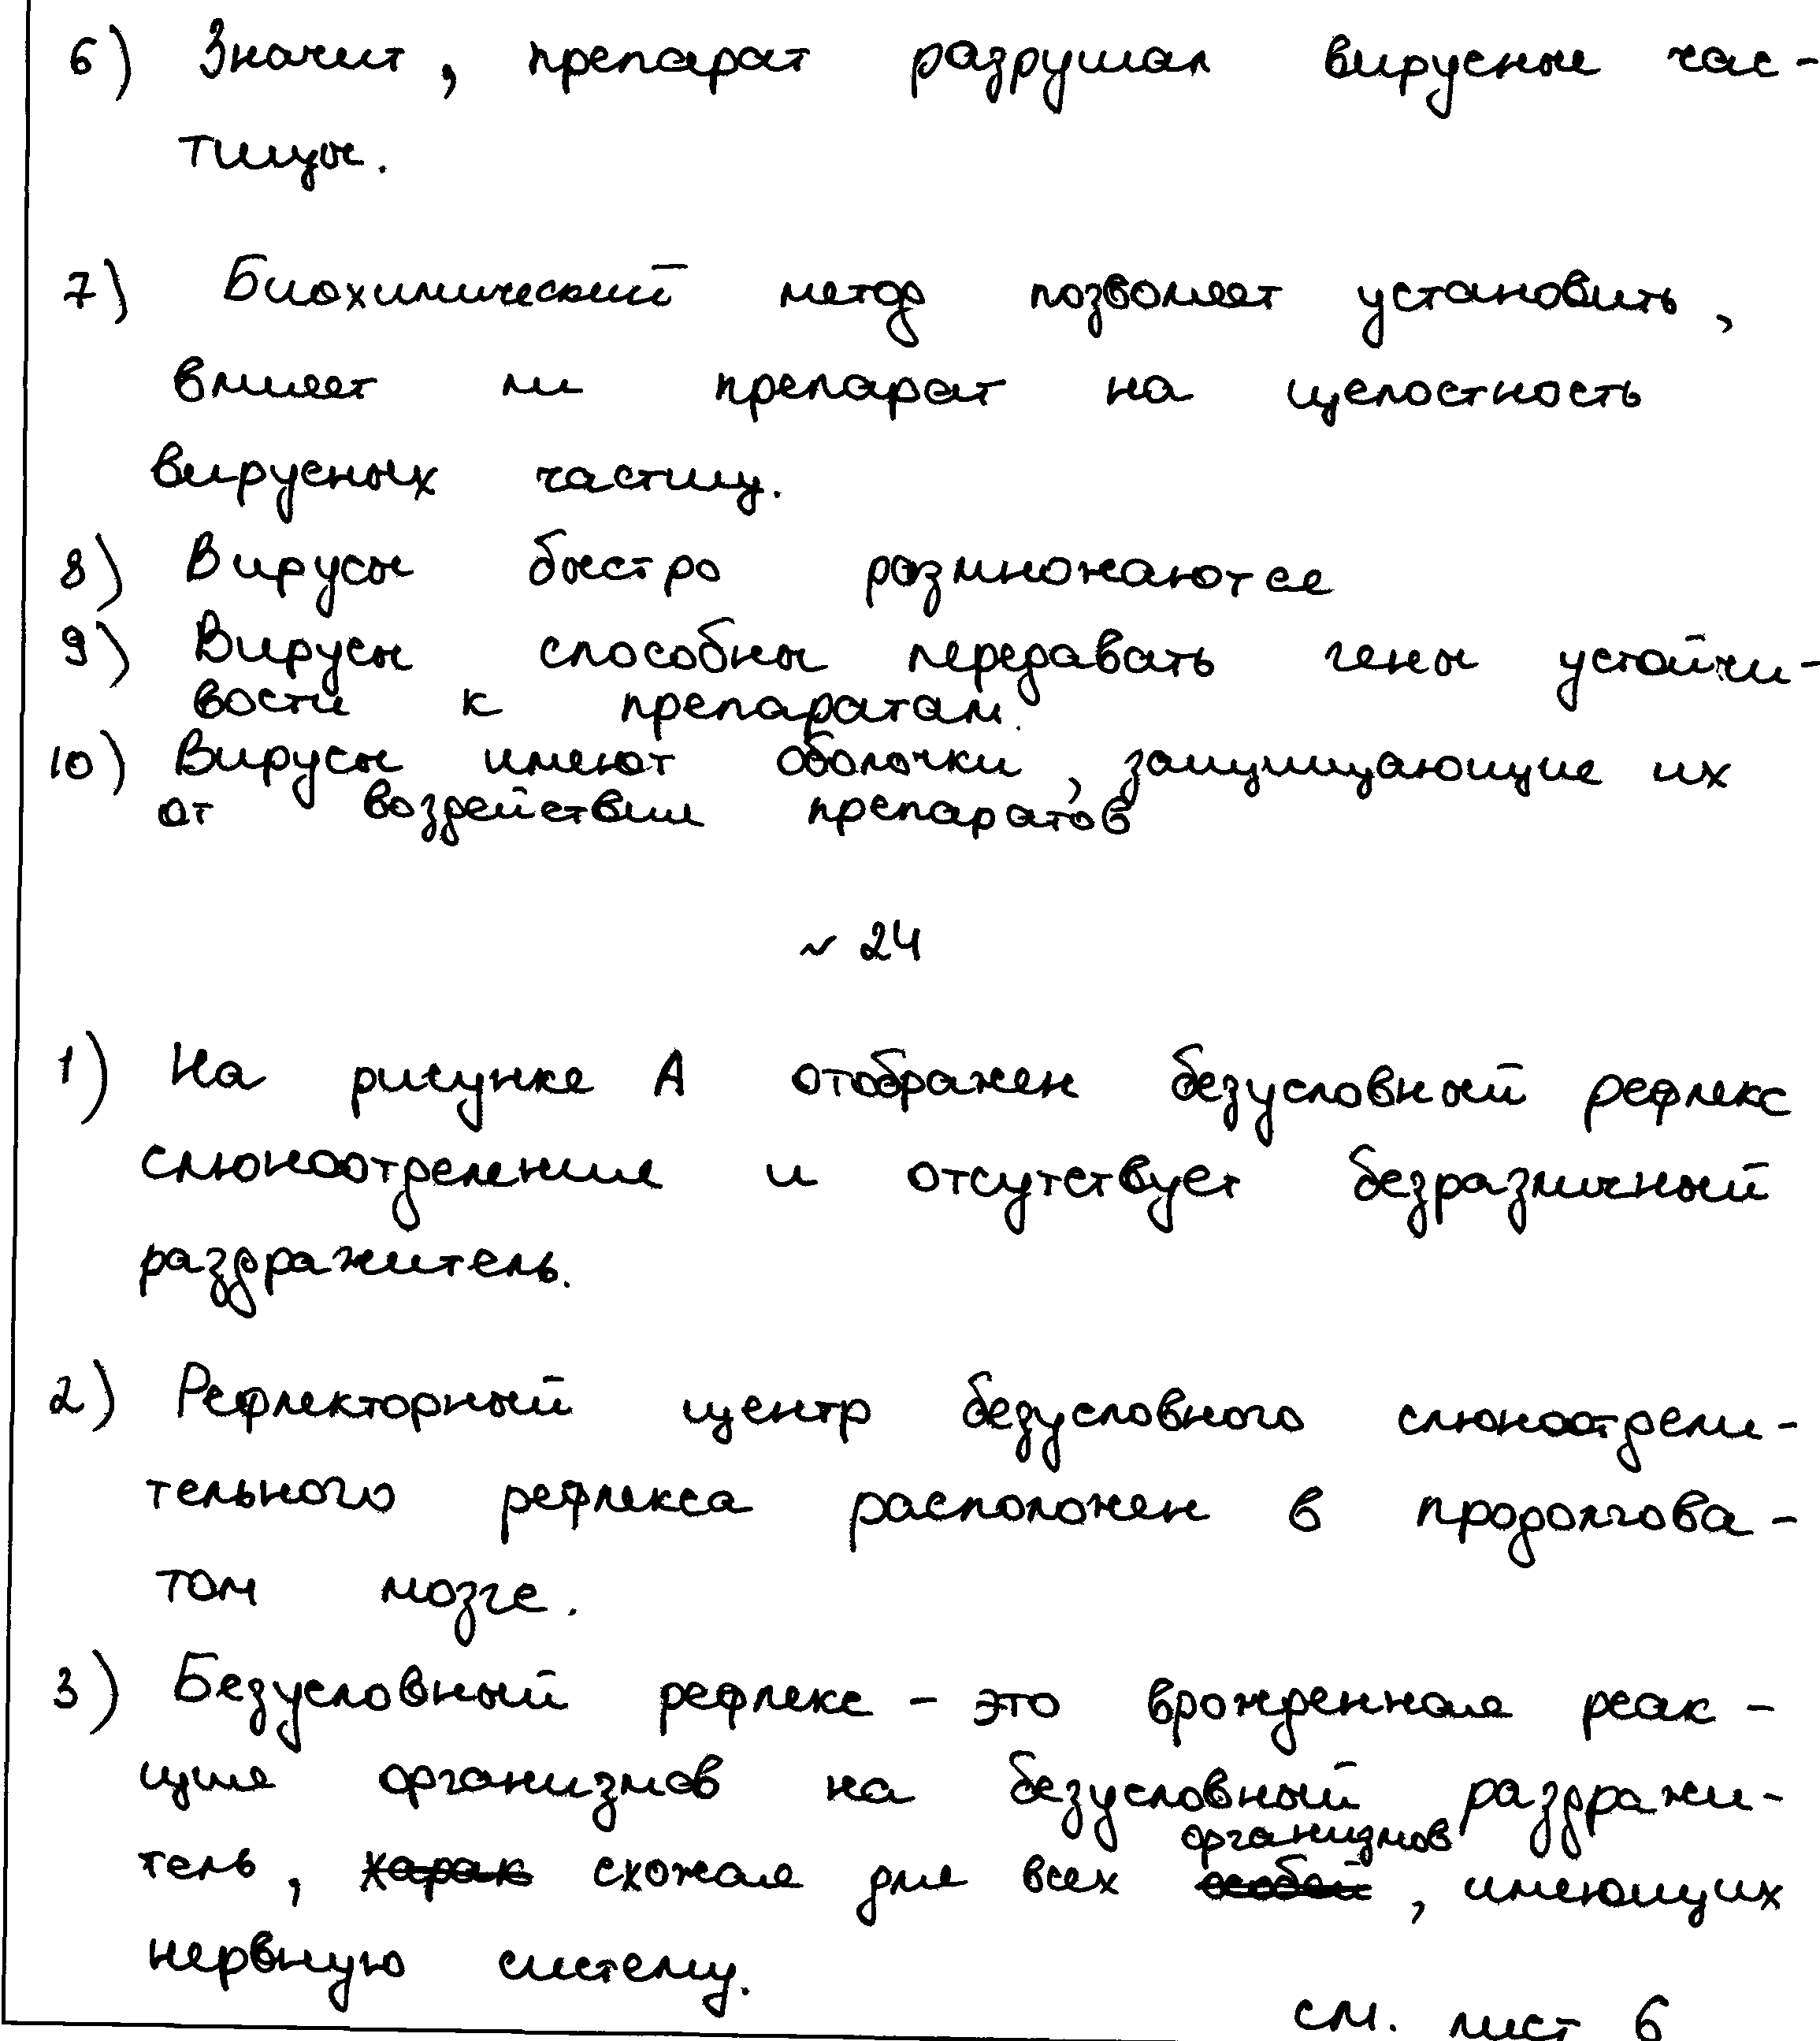 6) Значит, препарат разрушал вирусные час-
тицы.
7) Биохимический метод позволяет установить,
влияет ли препарат на целостность
вирусных частиц.
8) Вирусы быстро размножаются
9) Вирусы способны передавать гены устойчи-
вости к препаратам.
10) Вирусы имеют оболочки, защищающие их
от воздействия препаратов
~ 24
1) На рисунке А отображен безусловный рефлекс
слюноотделения и отсутствует безразличный
раздражитель.
2) Рефлекторный центр безусловного слюноотдели-
тельного рефлекса расположен в продолгова-
том мозге.
3) Безусловный рефлекс - это врожденная реак-
ция организмов на безусловный раздражи-
организмов
тель, харак схожая для всех особей, имеющих
нервную систему.
см. лист 6